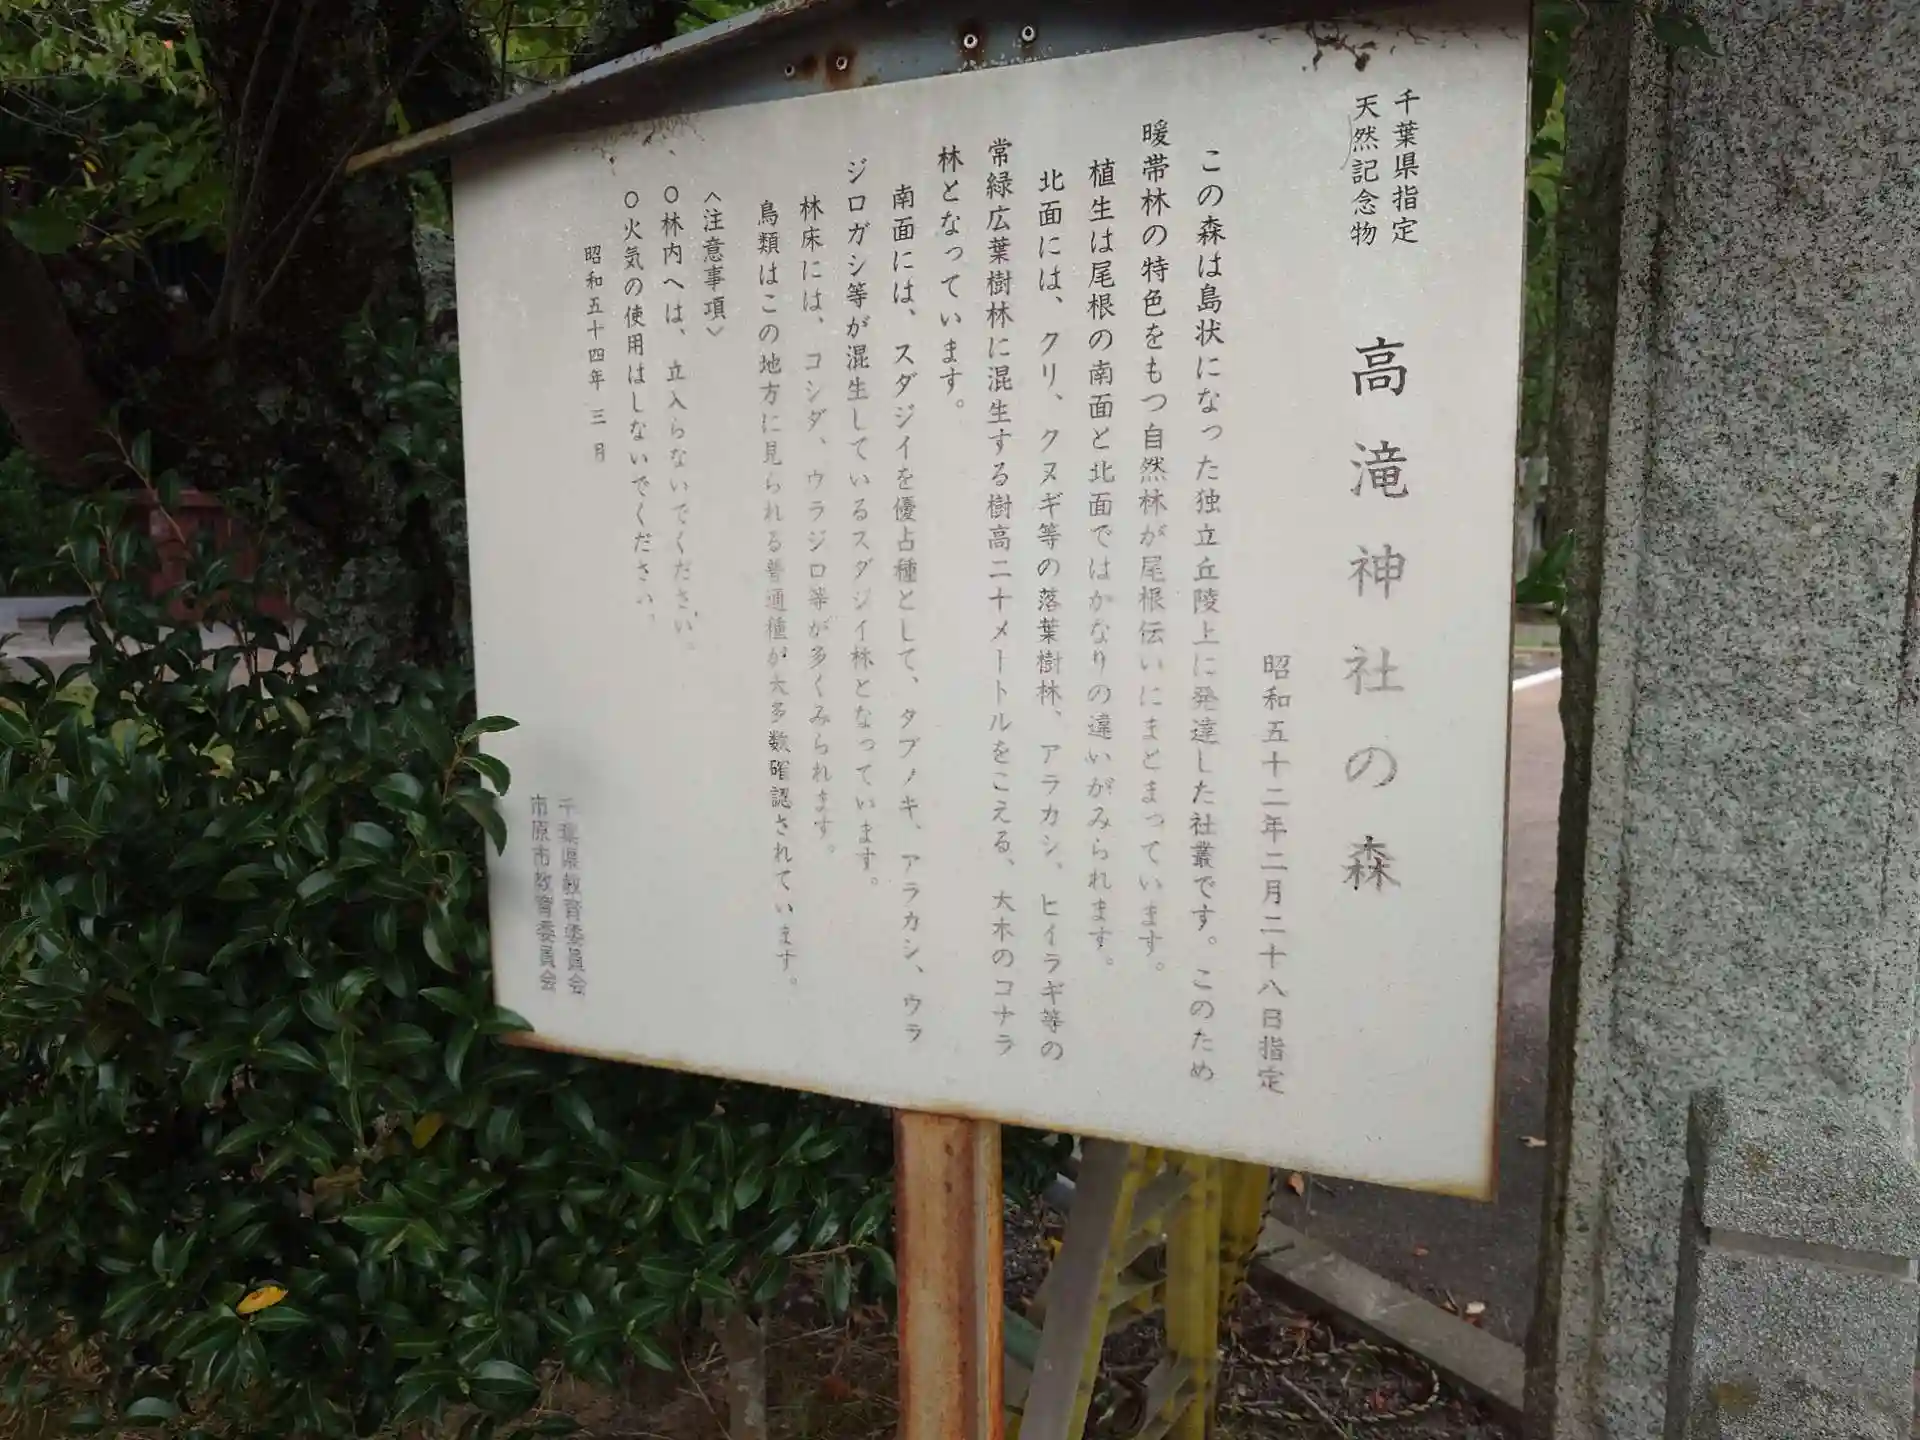 千葉県指定
天然記念物
高滝神社の森
昭和五十二年二月二十八日指定
この森は島状になった独立丘陵上に発達した社叢です。このため
暖帯林の特色をもつ自然林が尾根伝いにまとまっています。
植生は尾根の南面と北面ではかなりの違いがみられます。
北面には、クリ、クヌギ等の落葉樹林、アラカシ、ヒイラギ等の
常緑広葉樹林に混生する樹高二十メートルをこえる、大木のコナラ
林となっています。
南面には、スダジイを優占種として、タブノキ、アラカシ、ウラ
ジロガシ等が混生しているスダジイ林となっています。
林床には、コシダ、ウラジロ等が多くみられます。
鳥類はこの地方に見られる普通種が大多数確認されています。
〈注意事項〉
○林内へは、立入らないでください。
○火気の使用はしないでください。
昭和五十四年三月
千葉県教育委員会
市原市教育委員会